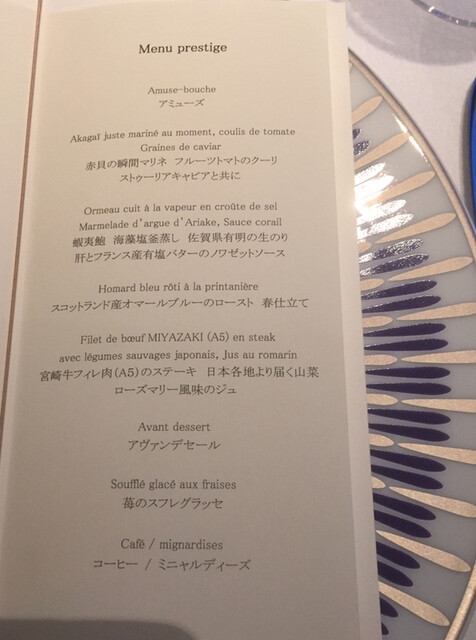 Menu prestige
Amuse-bouche
アミューズ
Akagaï juste mariné au moment, coulis de tomate
Graines de caviar
赤貝の瞬間マリネ フルーツトマトのクーリ
ストゥーリアキャビアと共に
Ormeau cuit à la vapeur en croûte de sel
Marmelade d'argue d'Ariake, Sauce corail
蝦夷鮑 海藻塩釜蒸し 佐賀県有明の生のり
肝とフランス産有塩バターのノワゼットソース
Homard bleu rôti à la printanière
スコットランド産オマールブルーのロースト 春仕立て
Filet de bœuf MIYAZAKI (A5) en steak
avec légumes sauvages japonais, Jus au romarin
宮崎牛フィレ肉(A5)のステーキ 日本各地より届く山菜
ローズマリー風味のジュ
Avant dessert
アヴァンデセール
Soufflé glacé aux fraises
苺のスフレグラッセ
Café / mignardises
コーヒー / ミニャルディーズ